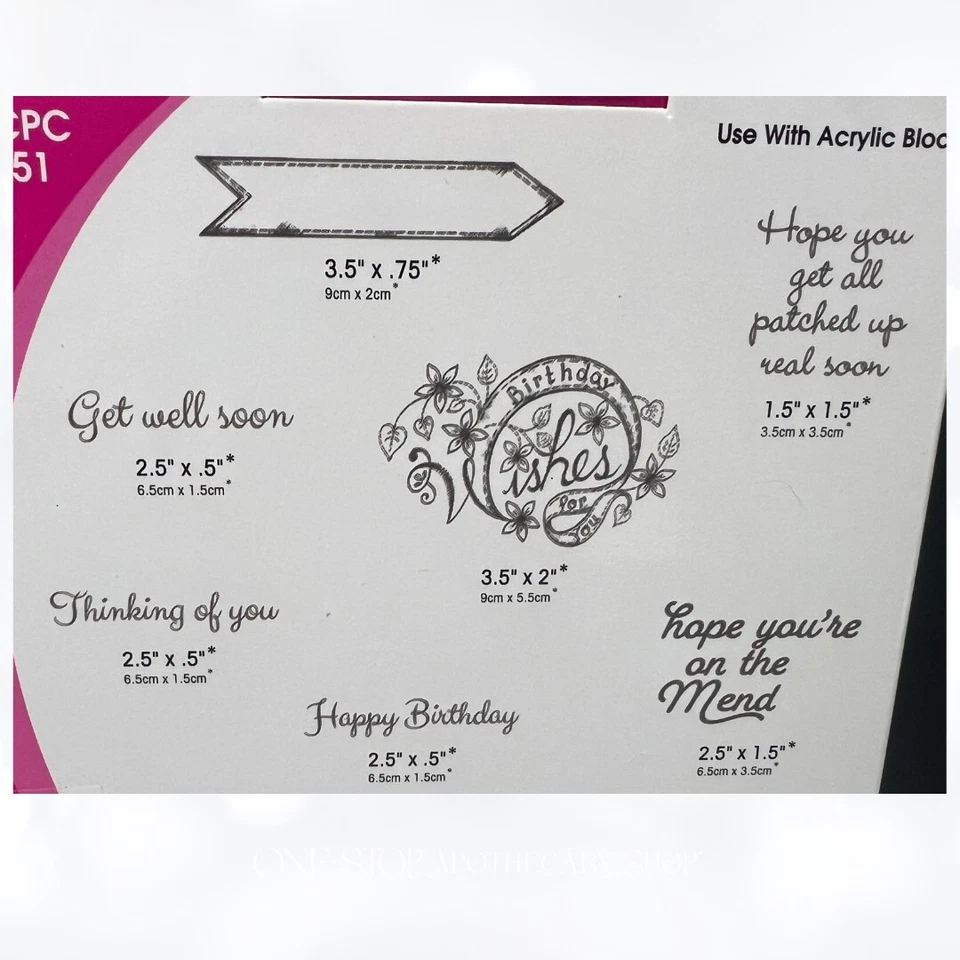 CPC
51
Use With Acrylic Bloc
3.5" x .75"*
9cm x 2cm*
Hope you
get all
patched up
real soon
1.5" x 1.5"*
3.5cm x 3.5cm*
Get well soon
2.5" x .5"*
6.5cm x 1.5cm*
Birthday
Wishes
for
you
3.5" x 2"*
9cm x 5.5cm*
Thinking of you
2.5" x .5"*
6.5cm x 1.5cm*
hope you're
on the
Mend
2.5" x 1.5"*
6.5cm x 3.5cm*
Happy Birthday
2.5" x .5"*
6.5cm x 1.5cm*
ONE-STOP APOTHECARY SHOP